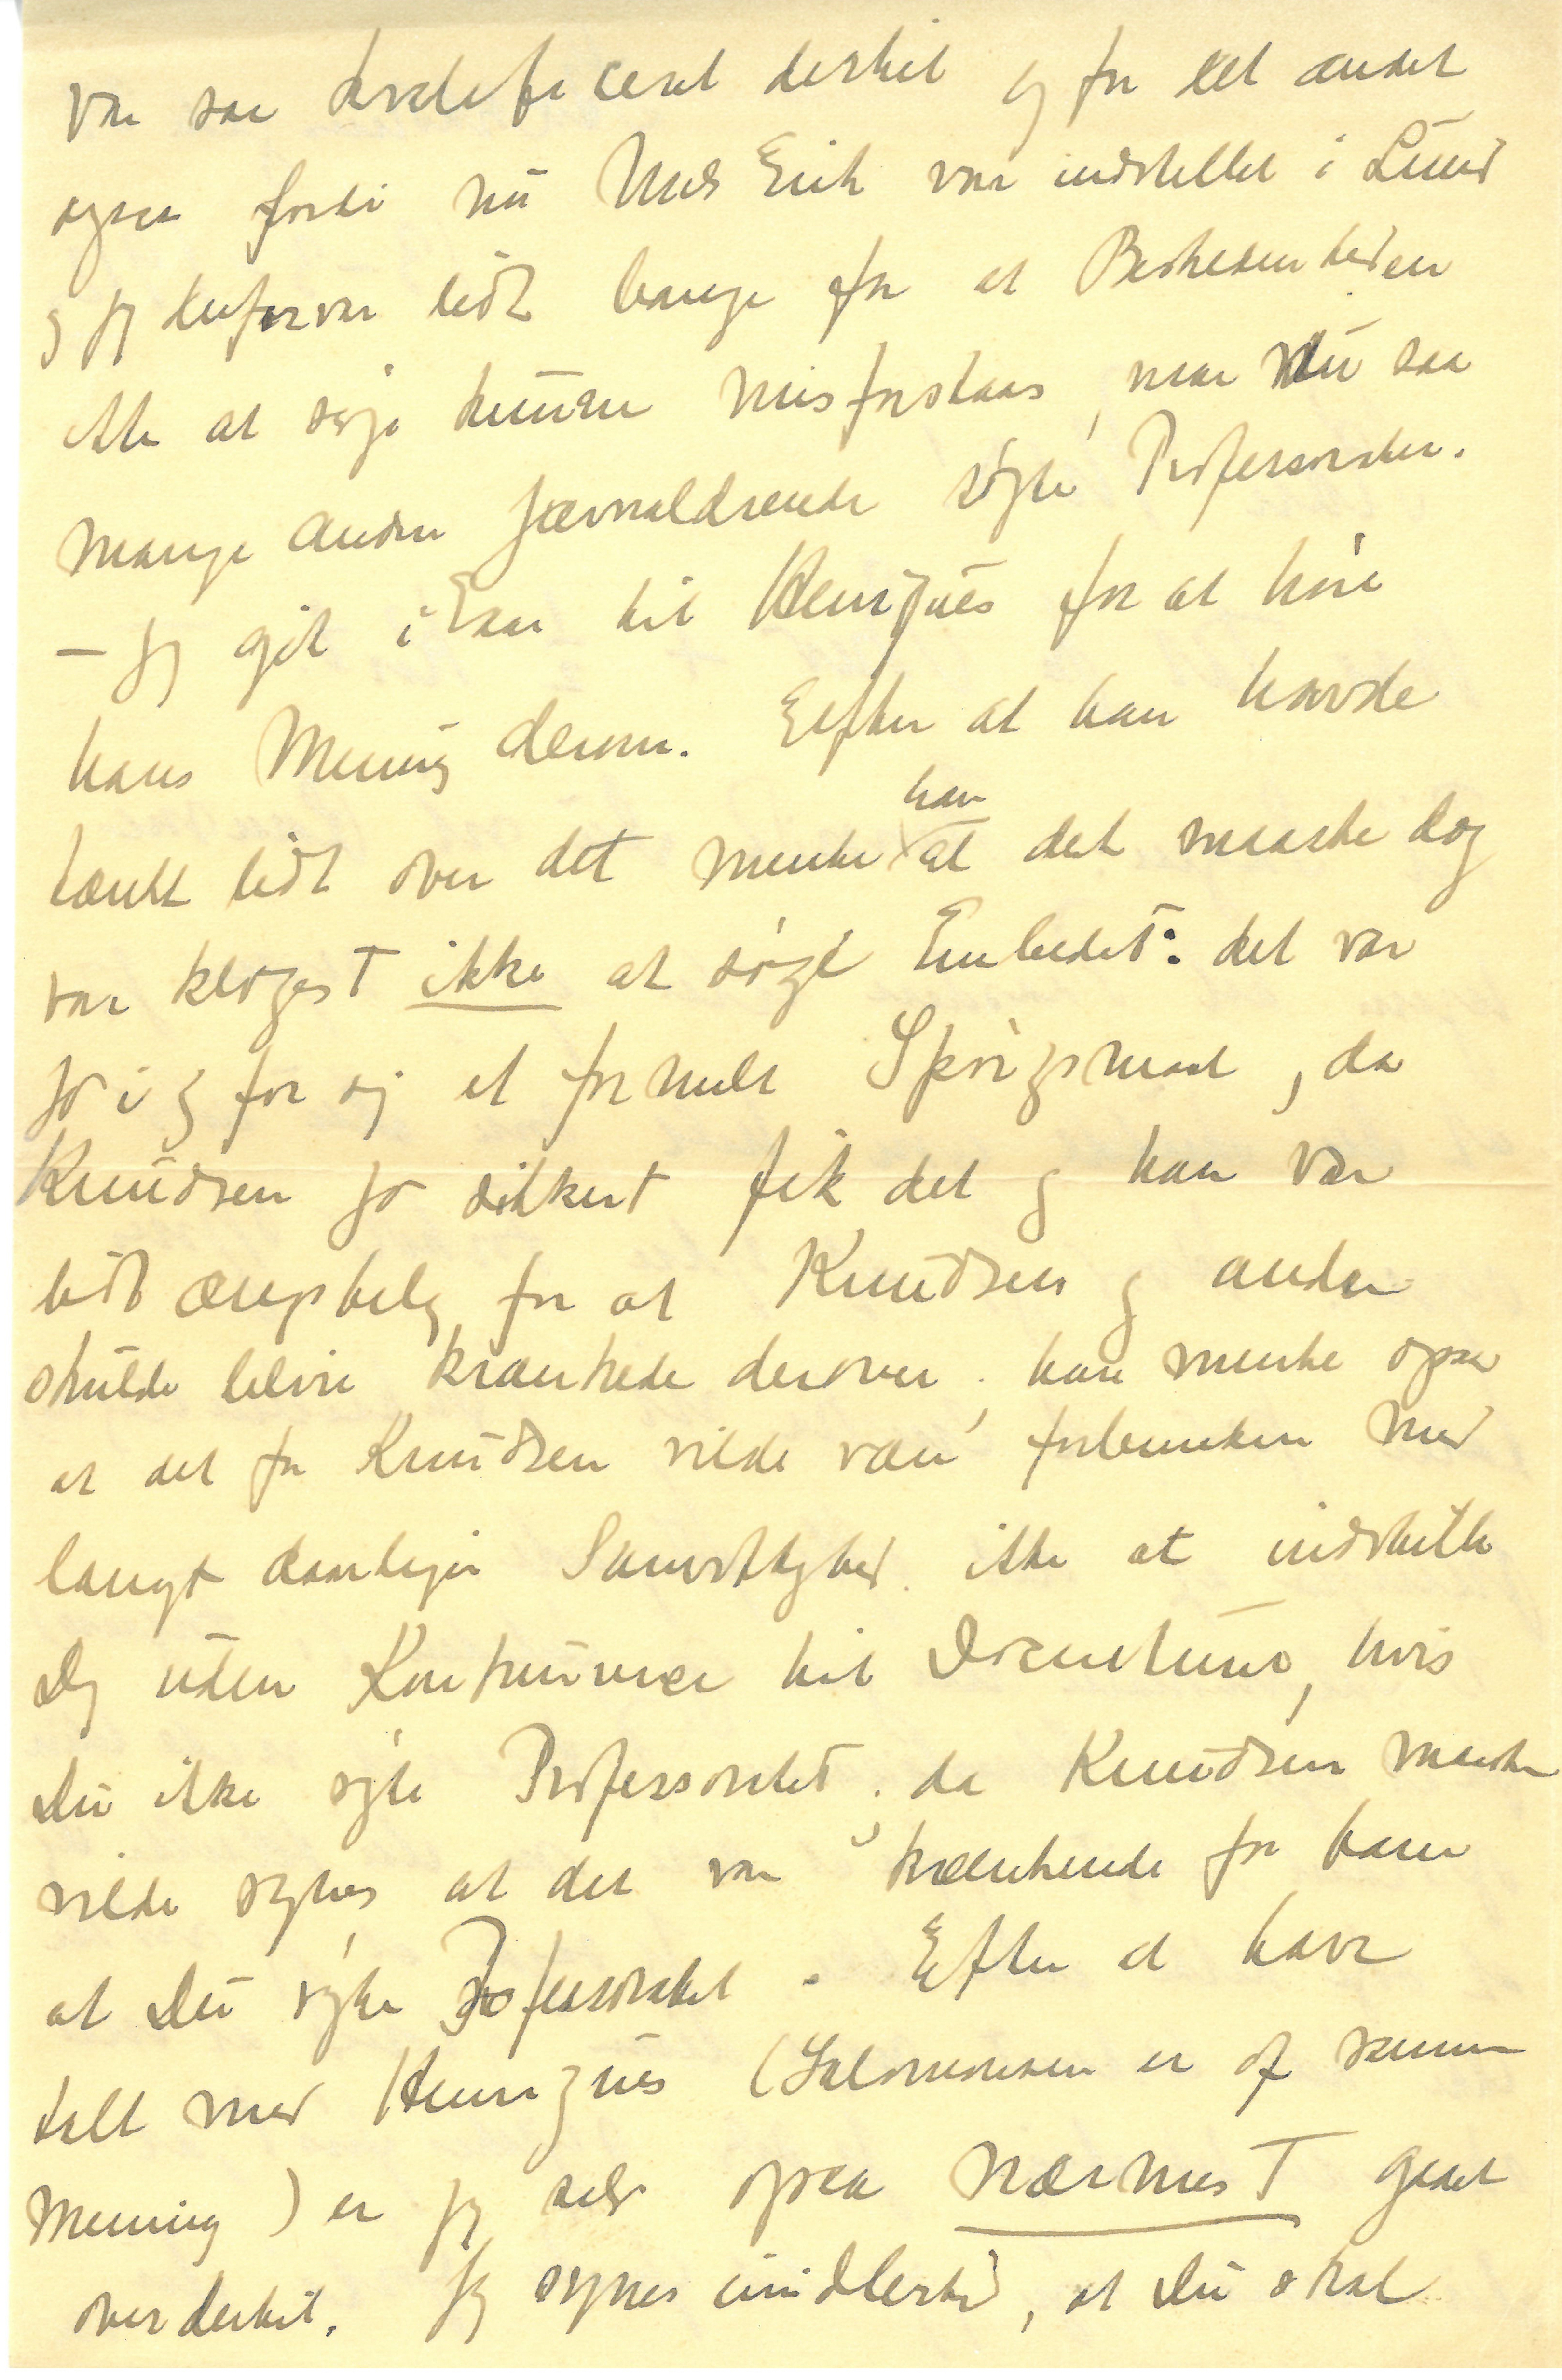 var saa kvalificeret dertil og for det andet
ogsaa fordi nu Niels Erik var indstillet i Lund
og jeg derfor var lidt bange for at Beskedenheden
ikke at søge kunde misforstaas, naar nu saa
mange andre jævnaldrende søgte Professorater.
– Jeg gik i Gaar til Henriques for at høre
hans Mening derom. Efter at han havde
tænkt lidt over det mente han at det maaske dog
var klogest ikke at søge Embedet: det var
jo i og for sig et formelt Spørgsmaal, da
Knudsen jo sikkert fik det og han var
lidt ængstelig for at Knudsen og andre
skulde blive krænkede derover, han mente ogsaa
at det for Knudsen vilde være forbunden med
langt daarligere Samvittighed ikke at indstille
Dig uden Konkurrence til Docenturet, hvis
Du ikke søgte Professoratet, da Knudsen maaske
vilde synes at det var krænkende for ham
at Du søgte Professoratet. Efter at have
talt med Henriques (Salomonsen er af samme
Mening) er jeg selv ogsaa nærmest gaaet
over dertil. Jeg synes imidlertid, at Du skal